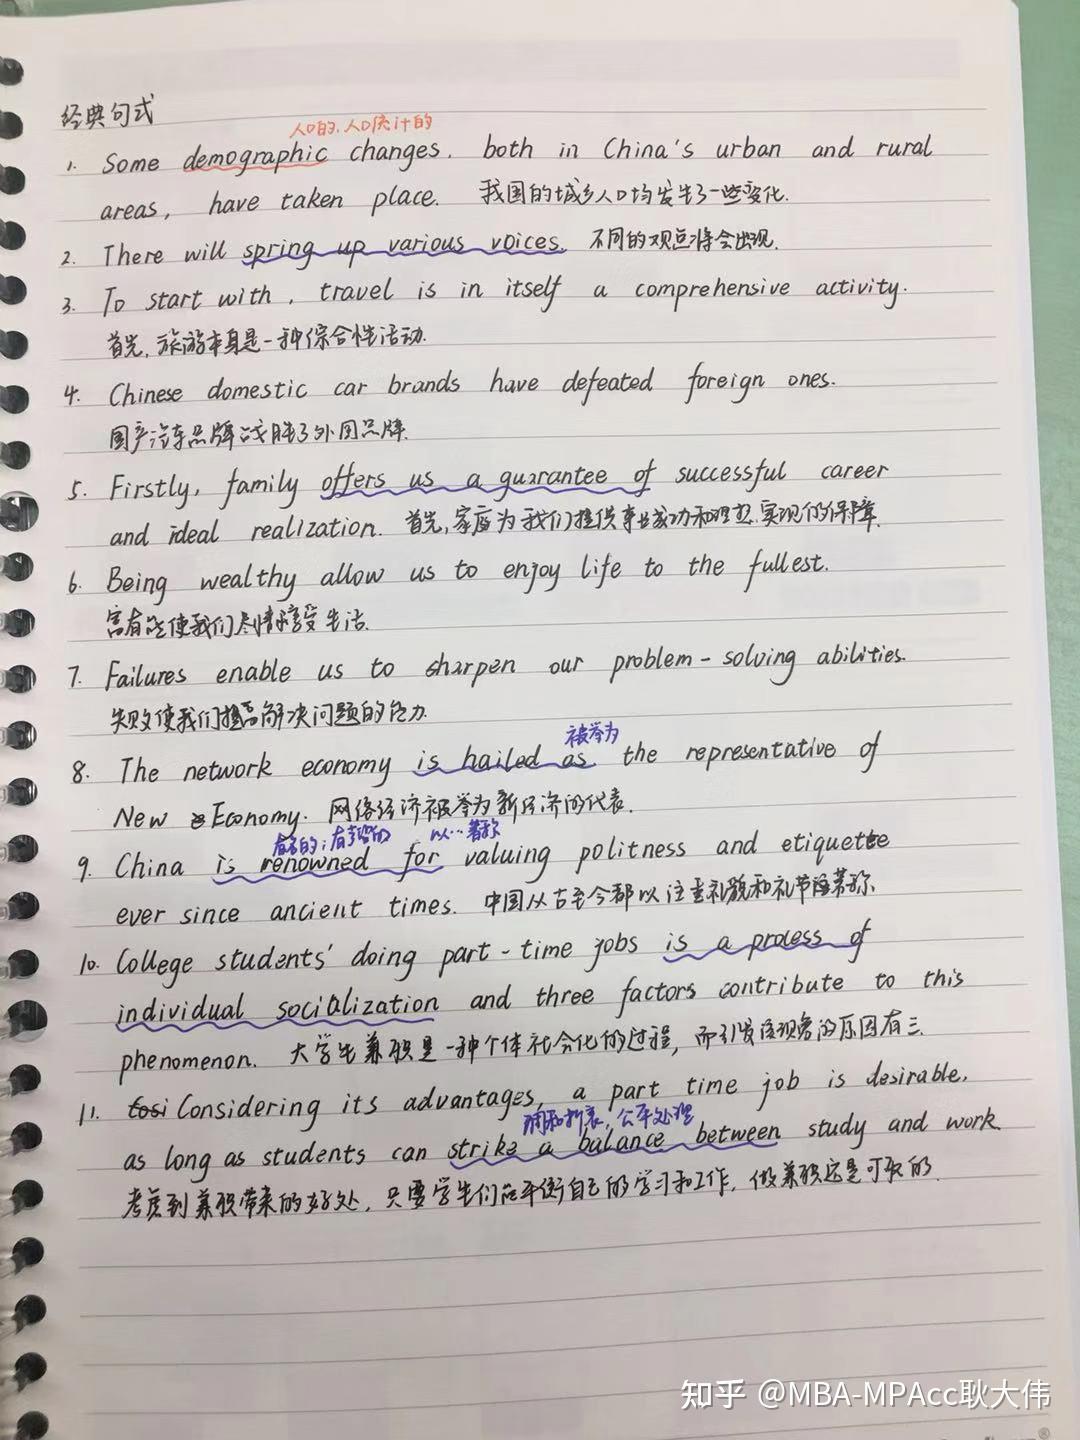 经典句式
人口的.人口统计的
1. Some demographic changes. both in China's urban and rural
areas, have taken place. 我国的城乡人口均发生了一些变化.
2. There will spring up various voices. 不同的观点将会出现.
3. To start with, travel is in itself a comprehensive activity.
首先,旅游本身是一种综合性活动.
4. Chinese domestic car brands have defeated foreign ones.
国产汽车品牌战胜了外国品牌.
5. Firstly, family offers us a guarantee of successful career
and ideal realization. 首先,家庭为我们提供事业成功和理想实现的保障.
6. Being wealthy allow us to enjoy life to the fullest.
富有能使我们尽情享受生活.
7. Failures enable us to sharpen our problem-solving abilities.
失败使我们提高解决问题的能力.
被誉为
8. The network economy is hailed as the representative of
New Economy. 网络经济被誉为新经济的代表.
有名的;有声望的 以…著称
9. China is renowned for valuing politness and etiquette
ever since ancient times. 中国从古至今都以注重礼貌和礼节著称.
10. College students' doing part-time jobs is a process of
individual socialization and three factors contribute to this
phenomenon. 大学生兼职是一种个体社会化的过程,而引发该现象的原因有三.
11. Considering its advantages, a part time job is desirable,
调和折衷,公平处理
as long as students can strike a balance between study and work.
考虑到兼职带来的好处,只要学生们能平衡自己的学习和工作,做兼职还是可取的.
知乎 @MBA-MPAcc耿大伟